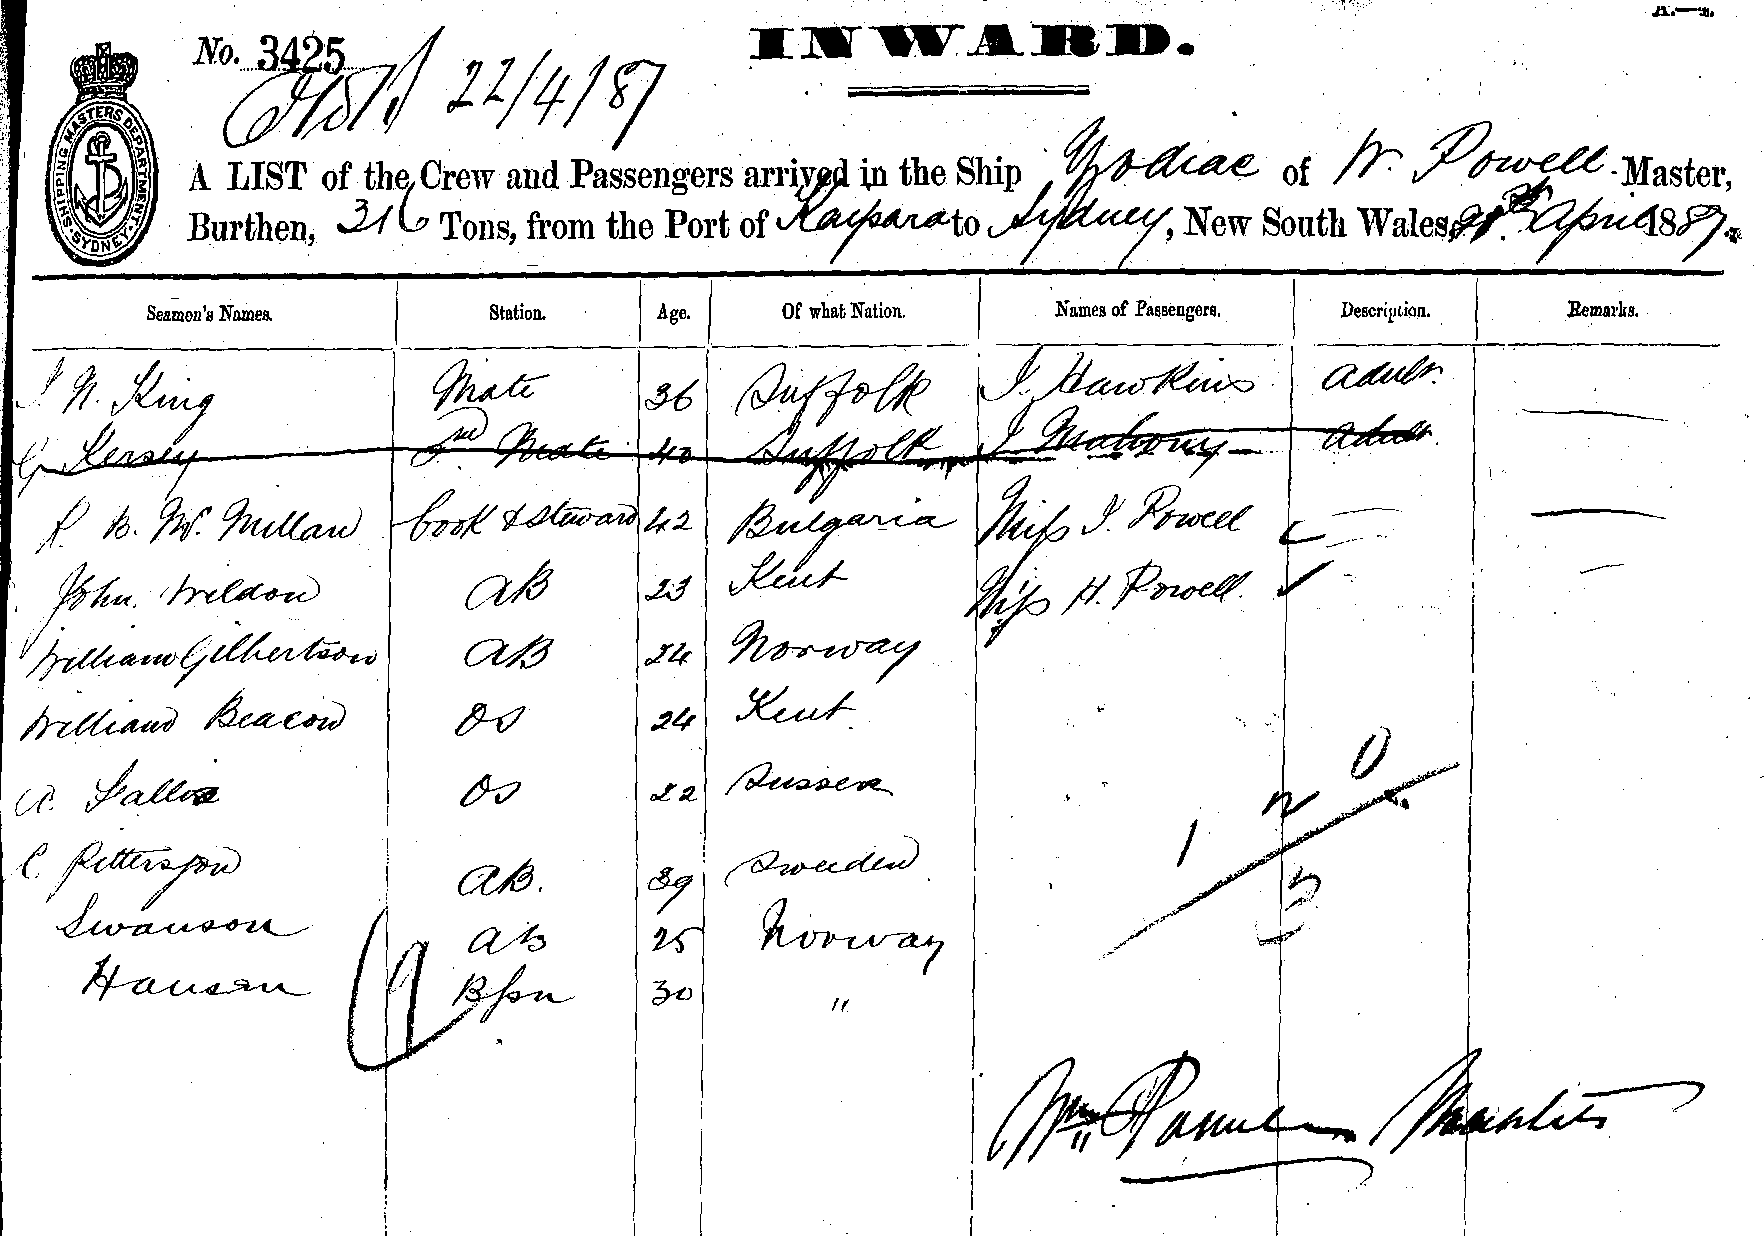 INWARD.
No. 3425
22/4/87
SHIPPING MASTERS DEPARTMENT · SYDNEY ·
A LIST of the Crew and Passengers arrived in the Ship Zodiac of W. Powell Master,
Burthen, 316 Tons, from the Port of Kaipara to Sydney, New South Wales, April 1887.
Seamen's Names. Station. Age. Of what Nation. Names of Passengers. Description. Remarks.
J. N. King Mate 36 Suffolk J. Hawkins Adult.
G Kersey 2nd Mate 40 Suffolk J Mahony Adult.
R. B. Mc. Millan Cook & Steward 42 Bulgaria Miss J. Powell
John Weldon AB 23 Kent Miss H. Powell.
William Gilbertson AB 24 Norway
William Beacon OS 24 Kent
A. OS 22 Sussex
C. Pettersson AB. 39 Sweden
Swanson AB 25 Norway
Hansen Bsn 30 "
9
1 2 0
3
Wm Powell Master